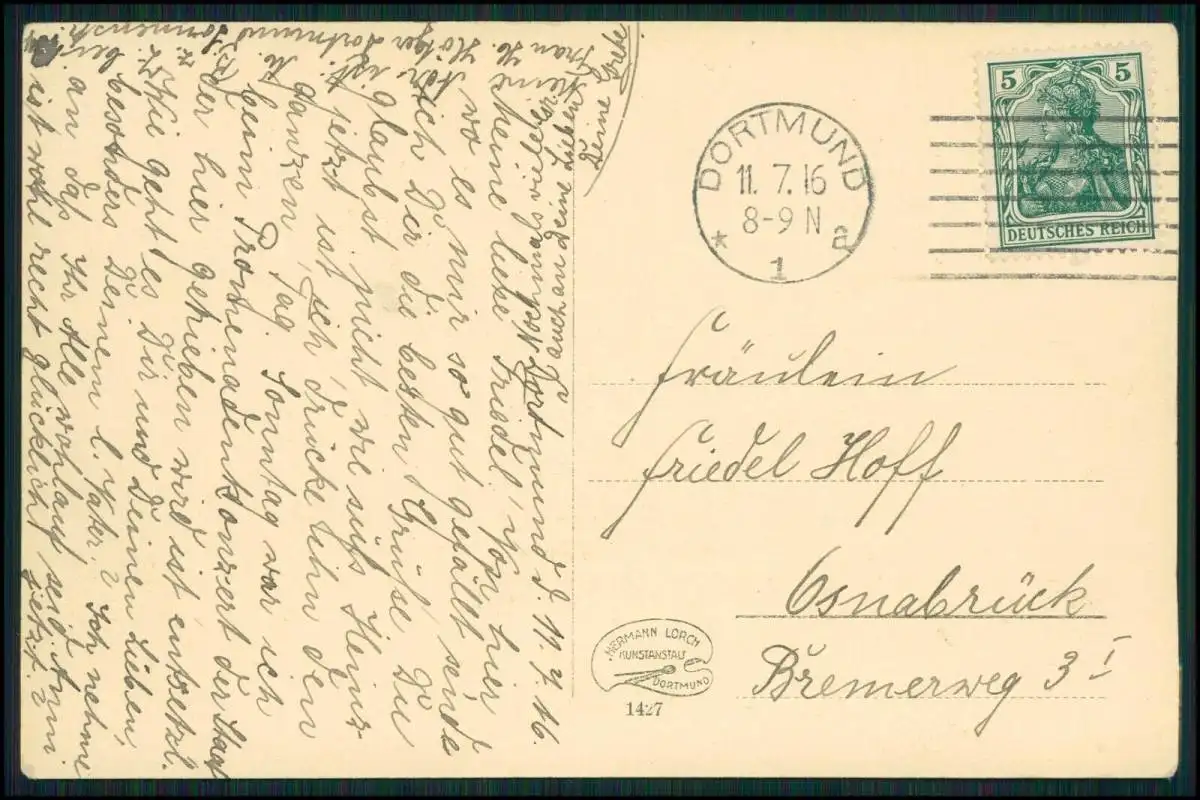 Dortmund d. 11. 7. 16.
Meine liebe Friedel! Von hier
wo es mir so gut gefällt sende
ich Dir die besten Grüße. Du
glaubst nicht wie süß Heinz
jetzt ist, ich drücke ihn den
ganzen Tag. Sonntag war ich
beim Promenadenkonzert der
der hier getrieben wird ist entsetzl.
Wie geht es Dir und Deinen Lieben,
besonders Deinem l. Vater? Ich nehme
an daß Ihr Alle wohlauf seid. Anni
ist wohl recht glücklich jetzt?
Frau H. Dortmund
Nochmals viele
auch an Deine Lieben
Deine
DORTMUND
11. 7. 16
8-9 N
* 1 a
5 5
DEUTSCHES REICH
Fräulein
Friedel Hoff
Osnabrück
Bremerweg 3 I
HERMANN LORCH
KUNSTANSTALT
DORTMUND
1427